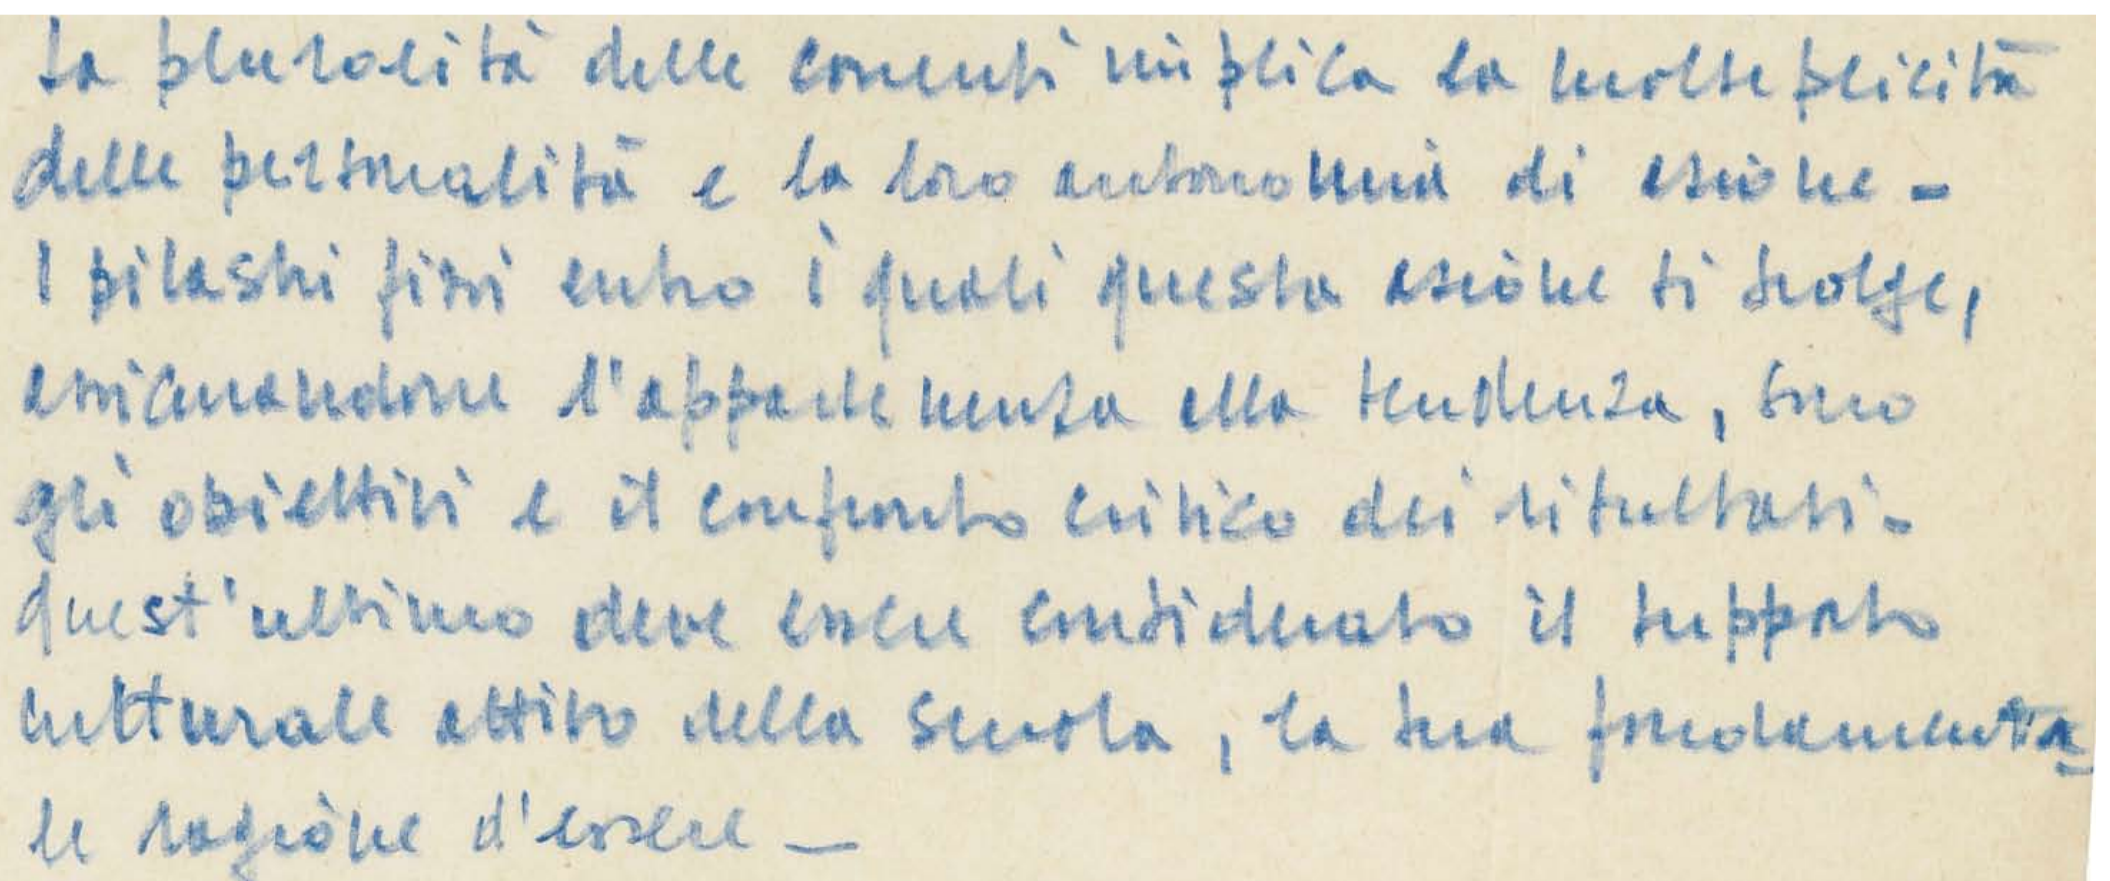 La pluralità delle correnti implica la molteplicità
delle personalità e la loro autonomia di azione -
I pilastri fissi entro i quali questa azione si svolge,
assicurandone l'appartenenza alla tendenza, sono
gli obiettivi e il confronto critico dei risultati -
Quest'ultimo deve essere considerato il supporto
culturale attivo della scuola, la sua fondamenta
le ragione d'essere —